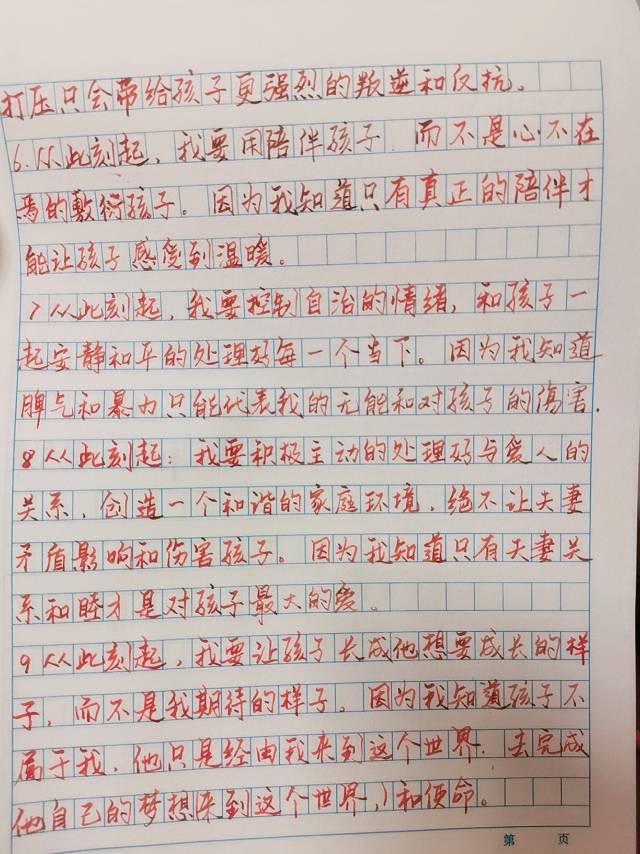 打压只会带给孩子更强烈的叛逆和反抗。
6.从此刻起，我要用陪伴孩子，而不是心不在
焉的敷衍孩子。因为我知道只有真正的陪伴才
能让孩子感受到温暖。
7从此刻起，我要控制自治的情绪，和孩子一
起安静和平的处理好每一个当下。因为我知道
脾气和暴力只能代表我的无能和对孩子的伤害.
8从此刻起：我要积极主动的处理好与爱人的
关系，创造一个和谐的家庭环境，绝不让夫妻
矛盾影响和伤害孩子。因为我知道只有夫妻关
系和睦才是对孩子最大的爱。
9从此刻起，我要让孩子长成他想要成长的样
子，而不是我期待的样子。因为我知道孩子不
属于我，他只是经由我来到这个世界，去完成
他自己的梦想来到这个世界,)和使命。
第 页